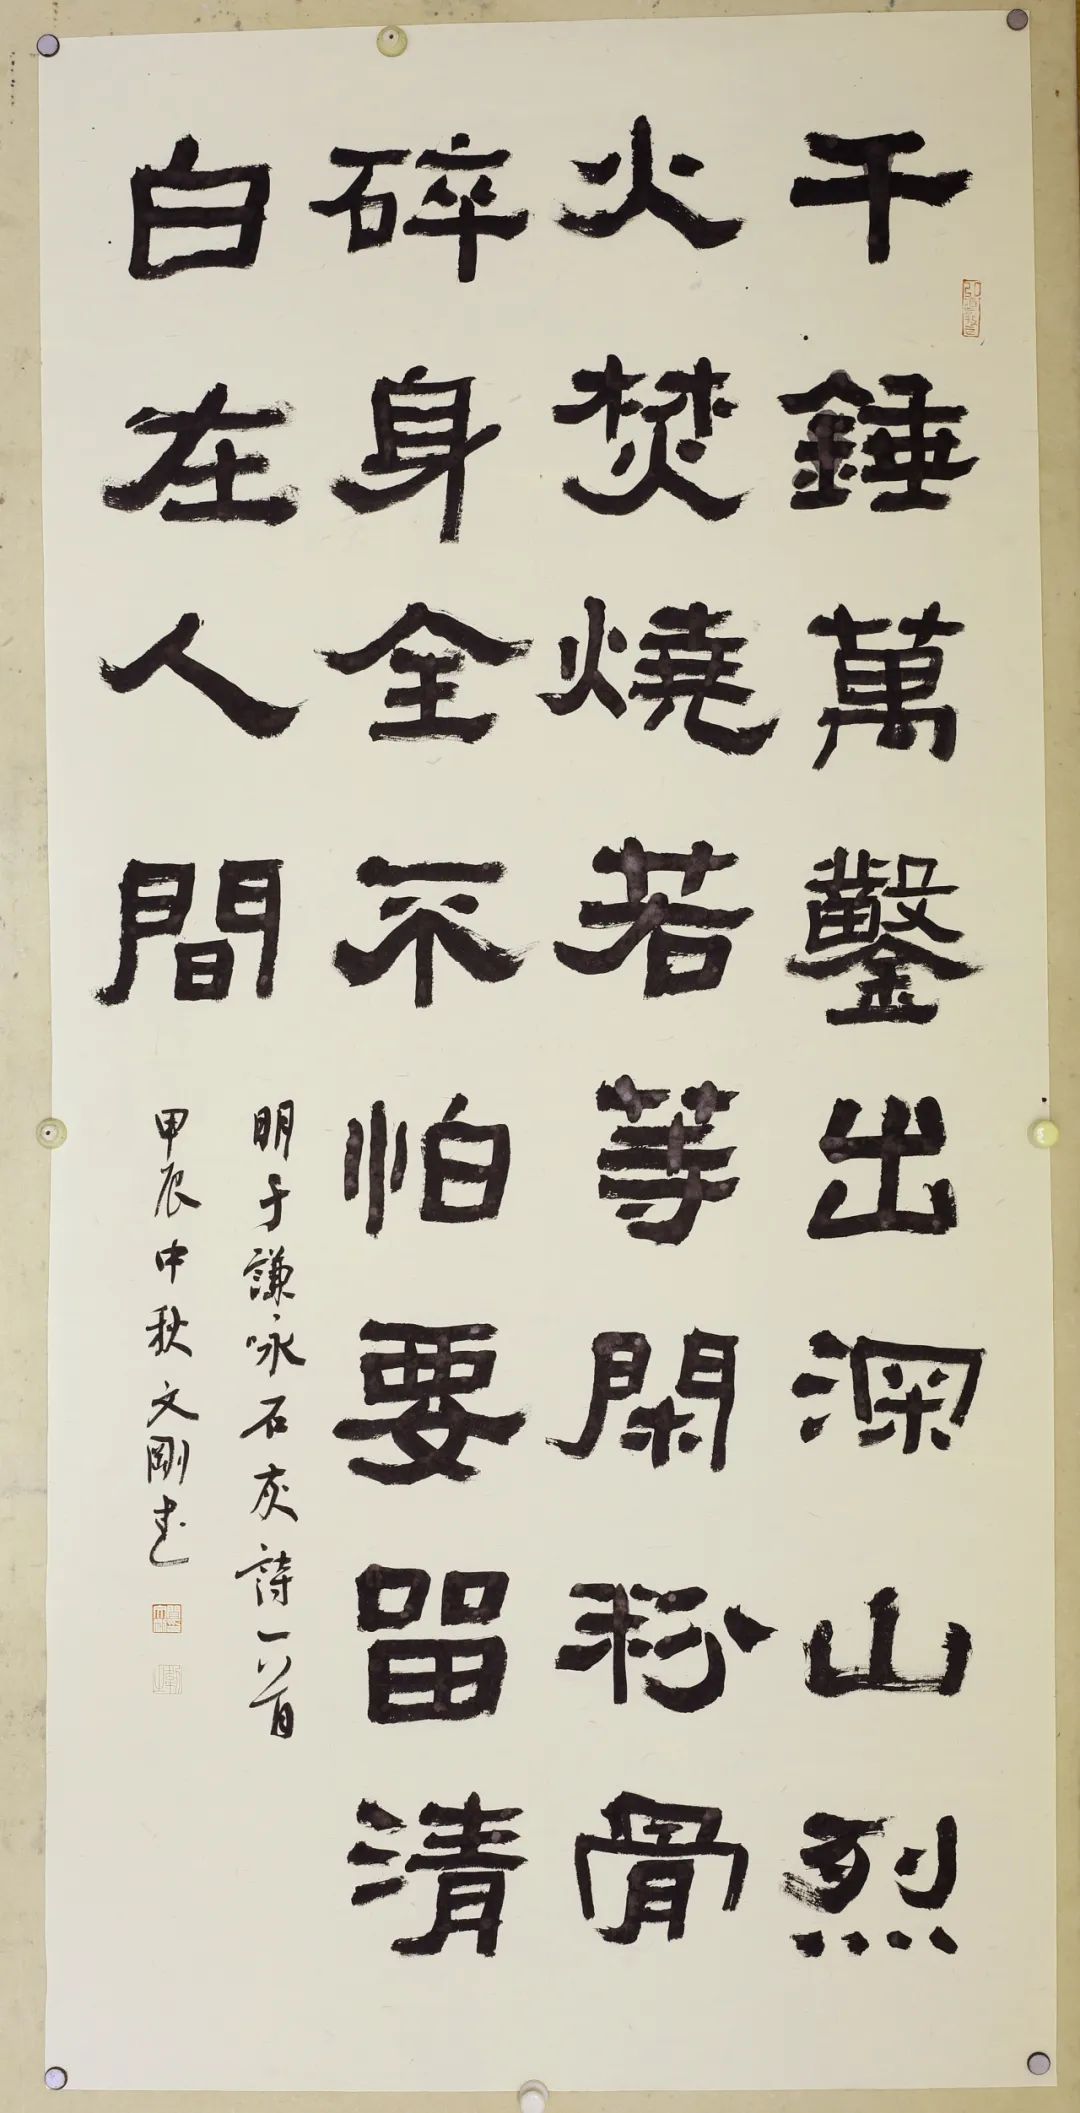 千錘萬鑿出深山烈
火焚燒若等閑粉骨
碎身全不怕要留清
白在人間
明于謙咏石灰詩一首
甲辰中秋文剛書